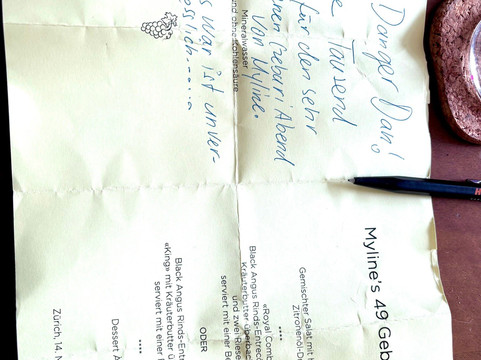 Danger Dan!
Tausend
für den sehr
Geburi Abend
von Myline.
Mineralwasser
und ohne Kohlensäure
war ist unver-
Myline's 49 Geb
Gemischter Salat mit
****
«Royal Comb
Black Angus Rinds-Entrec
Kräuterbutter
und zwei
serviert mit einer
ODER
Black Angus Rinds-Entr
«King» mit Kräuterbutter
serviert mit einer
****
Dessert
Zürich, 14.